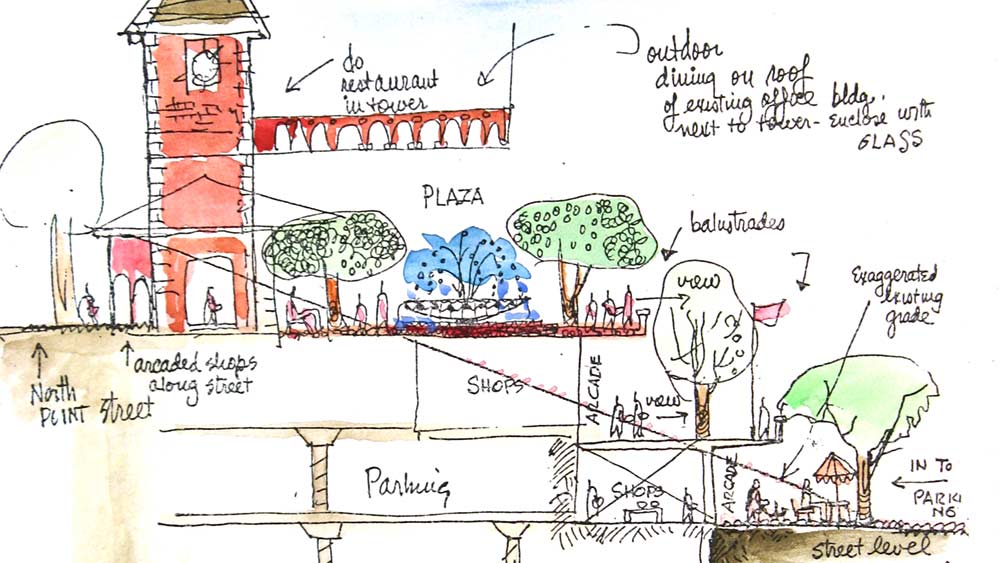 do
restaurant
in tower
outdoor
dining on roof
of existing office bldg.
next to tower - enclose with
GLASS
PLAZA
balustrades
view
Exaggerated
existing
grade
arcaded shops
along street
North
POINT street
SHOPS
ARCADE
view
Parking
SHOPS
ARCADE
IN TO
PARKI
NG
street level